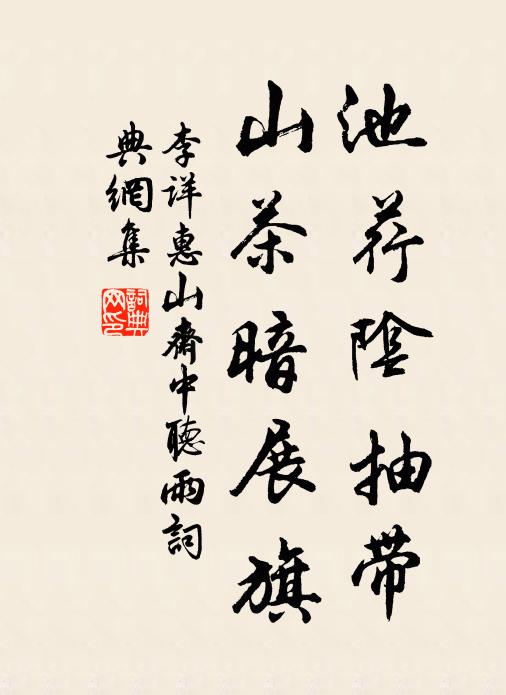 池荇陰抽帶
山茶暗展旗
李詳惠山齋中聽雨詞
典網集
詞典
网印